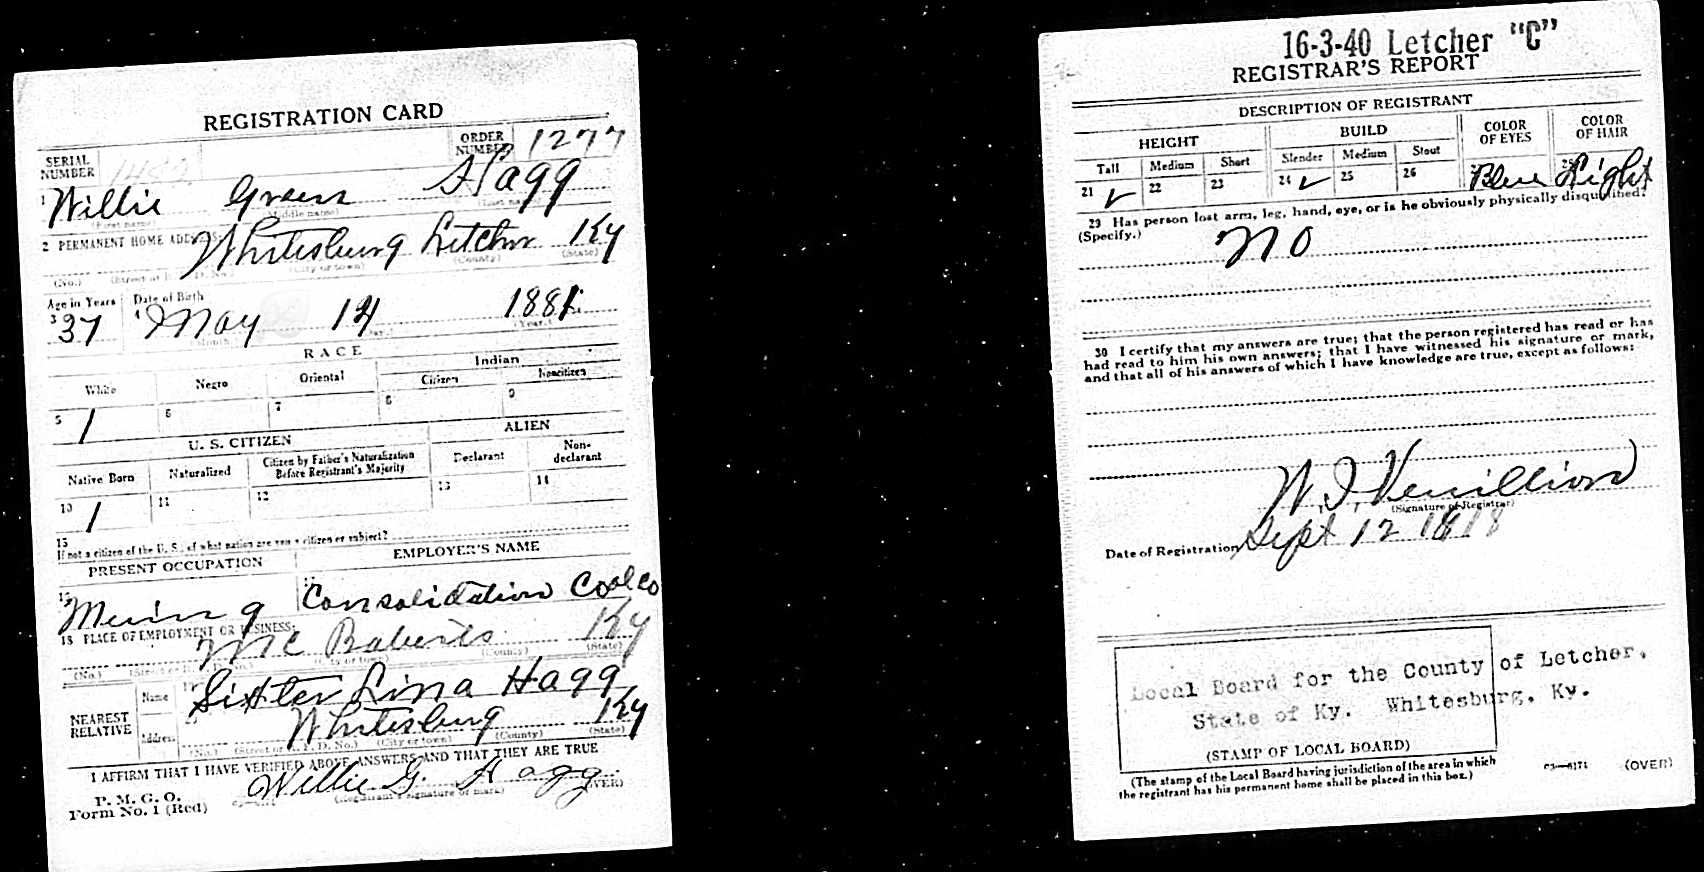 REGISTRATION CARD
SERIAL NUMBER 1482 ORDER NUMBER 1277
1 Willie Green Hagg
(First name) (Middle name) (Last name)
2 PERMANENT HOME ADDRESS:
Whitesburg Letcher Ky
(No.) (Street or R. F. D. No.) (City or town) (County) (State)
Age in Years Date of Birth
3 37 4 May 14 1881
(Month.) (Day.) (Year.)
RACE
White Negro Oriental Indian
Citizen Noncitizen
5 1 6 7 8 9
U. S. CITIZEN ALIEN
Native Born Naturalized Citizen by Father's Naturalization Before Registrant's Majority Declarant Non-declarant
10 1 11 12 13 14
15
If not a citizen of the U. S., of what nation are you a citizen or subject?
PRESENT OCCUPATION EMPLOYER'S NAME
16 Mining Consolidation Coal Co
18 PLACE OF EMPLOYMENT OR BUSINESS:
McRoberts Ky
(No.) (Street or R. F. D. No.) (City or town) (County) (State)
NEAREST RELATIVE
Name Sister Lina Hagg
Address Whitesburg Ky
(No.) (Street or R. F. D. No.) (City or town) (County) (State)
I AFFIRM THAT I HAVE VERIFIED ABOVE ANSWERS AND THAT THEY ARE TRUE
P. M. G. O.
Form No. 1 (Red) Willie G. Hagg
(Registrant's signature or mark) (OVER)
16-3-40 Letcher "C"
REGISTRAR'S REPORT
DESCRIPTION OF REGISTRANT
HEIGHT BUILD COLOR OF EYES COLOR OF HAIR
Tall Medium Short Slender Medium Stout
21 ✓ 22 23 24 ✓ 25 26 Blue Light
29 Has person lost arm, leg, hand, eye, or is he obviously physically disqualified?
(Specify.) No
30 I certify that my answers are true; that the person registered has read or has
had read to him his own answers; that I have witnessed his signature or mark,
and that all of his answers of which I have knowledge are true, except as follows:
(Signature of Registrar)
Date of Registration Sept 12 1918
Local Board for the County of Letcher,
State of Ky. Whitesburg, Ky.
(STAMP OF LOCAL BOARD)
(The stamp of the Local Board having jurisdiction of the area in which
the registrant has his permanent home shall be placed in this box.)
03—6171 (OVER)